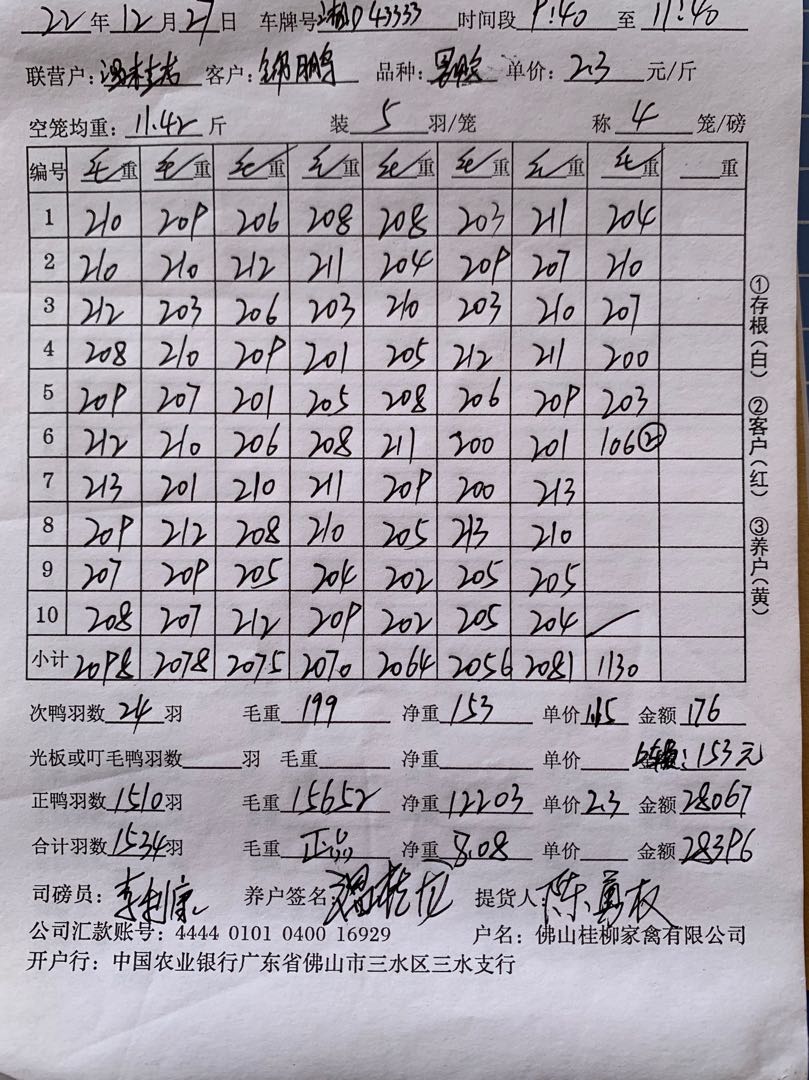 22年12月27日 车牌号 D43333 时间段 9:40 至 11:40
联营户: 客户: 锦鹏 品种: 单价: 2.3 元/斤
空笼均重: 11.42 斤 装 5 羽/笼 称 4 笼/磅
编号 毛重 毛重 毛重 毛重 毛重 毛重 毛重 毛重 重
1 210 209 206 208 208 203 211 204
2 210 210 212 211 204 209 207 210
3 212 203 206 203 210 203 210 207
4 208 210 209 201 205 212 211 200
5 209 207 201 205 208 206 209 203
6 212 210 206 208 211 200 201 106②
7 213 201 210 211 209 200 213
8 209 212 208 210 205 213 210
9 207 209 205 204 202 205 205
10 208 207 212 209 202 205 204
小计 2098 2078 2075 2070 2064 2056 2081 1130
①存根(白) ②客户(红) ③养户(黄)
次鸭羽数 24 羽 毛重 199 净重 153 单价 1.15 金额 176
光板或叮毛鸭羽数 羽 毛重 净重 单价 : 153元
正鸭羽数 1510 羽 毛重 15652 净重 12203 单价 2.3 金额 28067
合计羽数 1534 羽 毛重 正品 净重 8.08 单价 金额 28396
司磅员: 李利康 养户签名: 提货人: 陈勇权
公司汇款账号: 4444 0101 0400 16929 户名: 佛山桂柳家禽有限公司
开户行: 中国农业银行广东省佛山市三水区三水支行